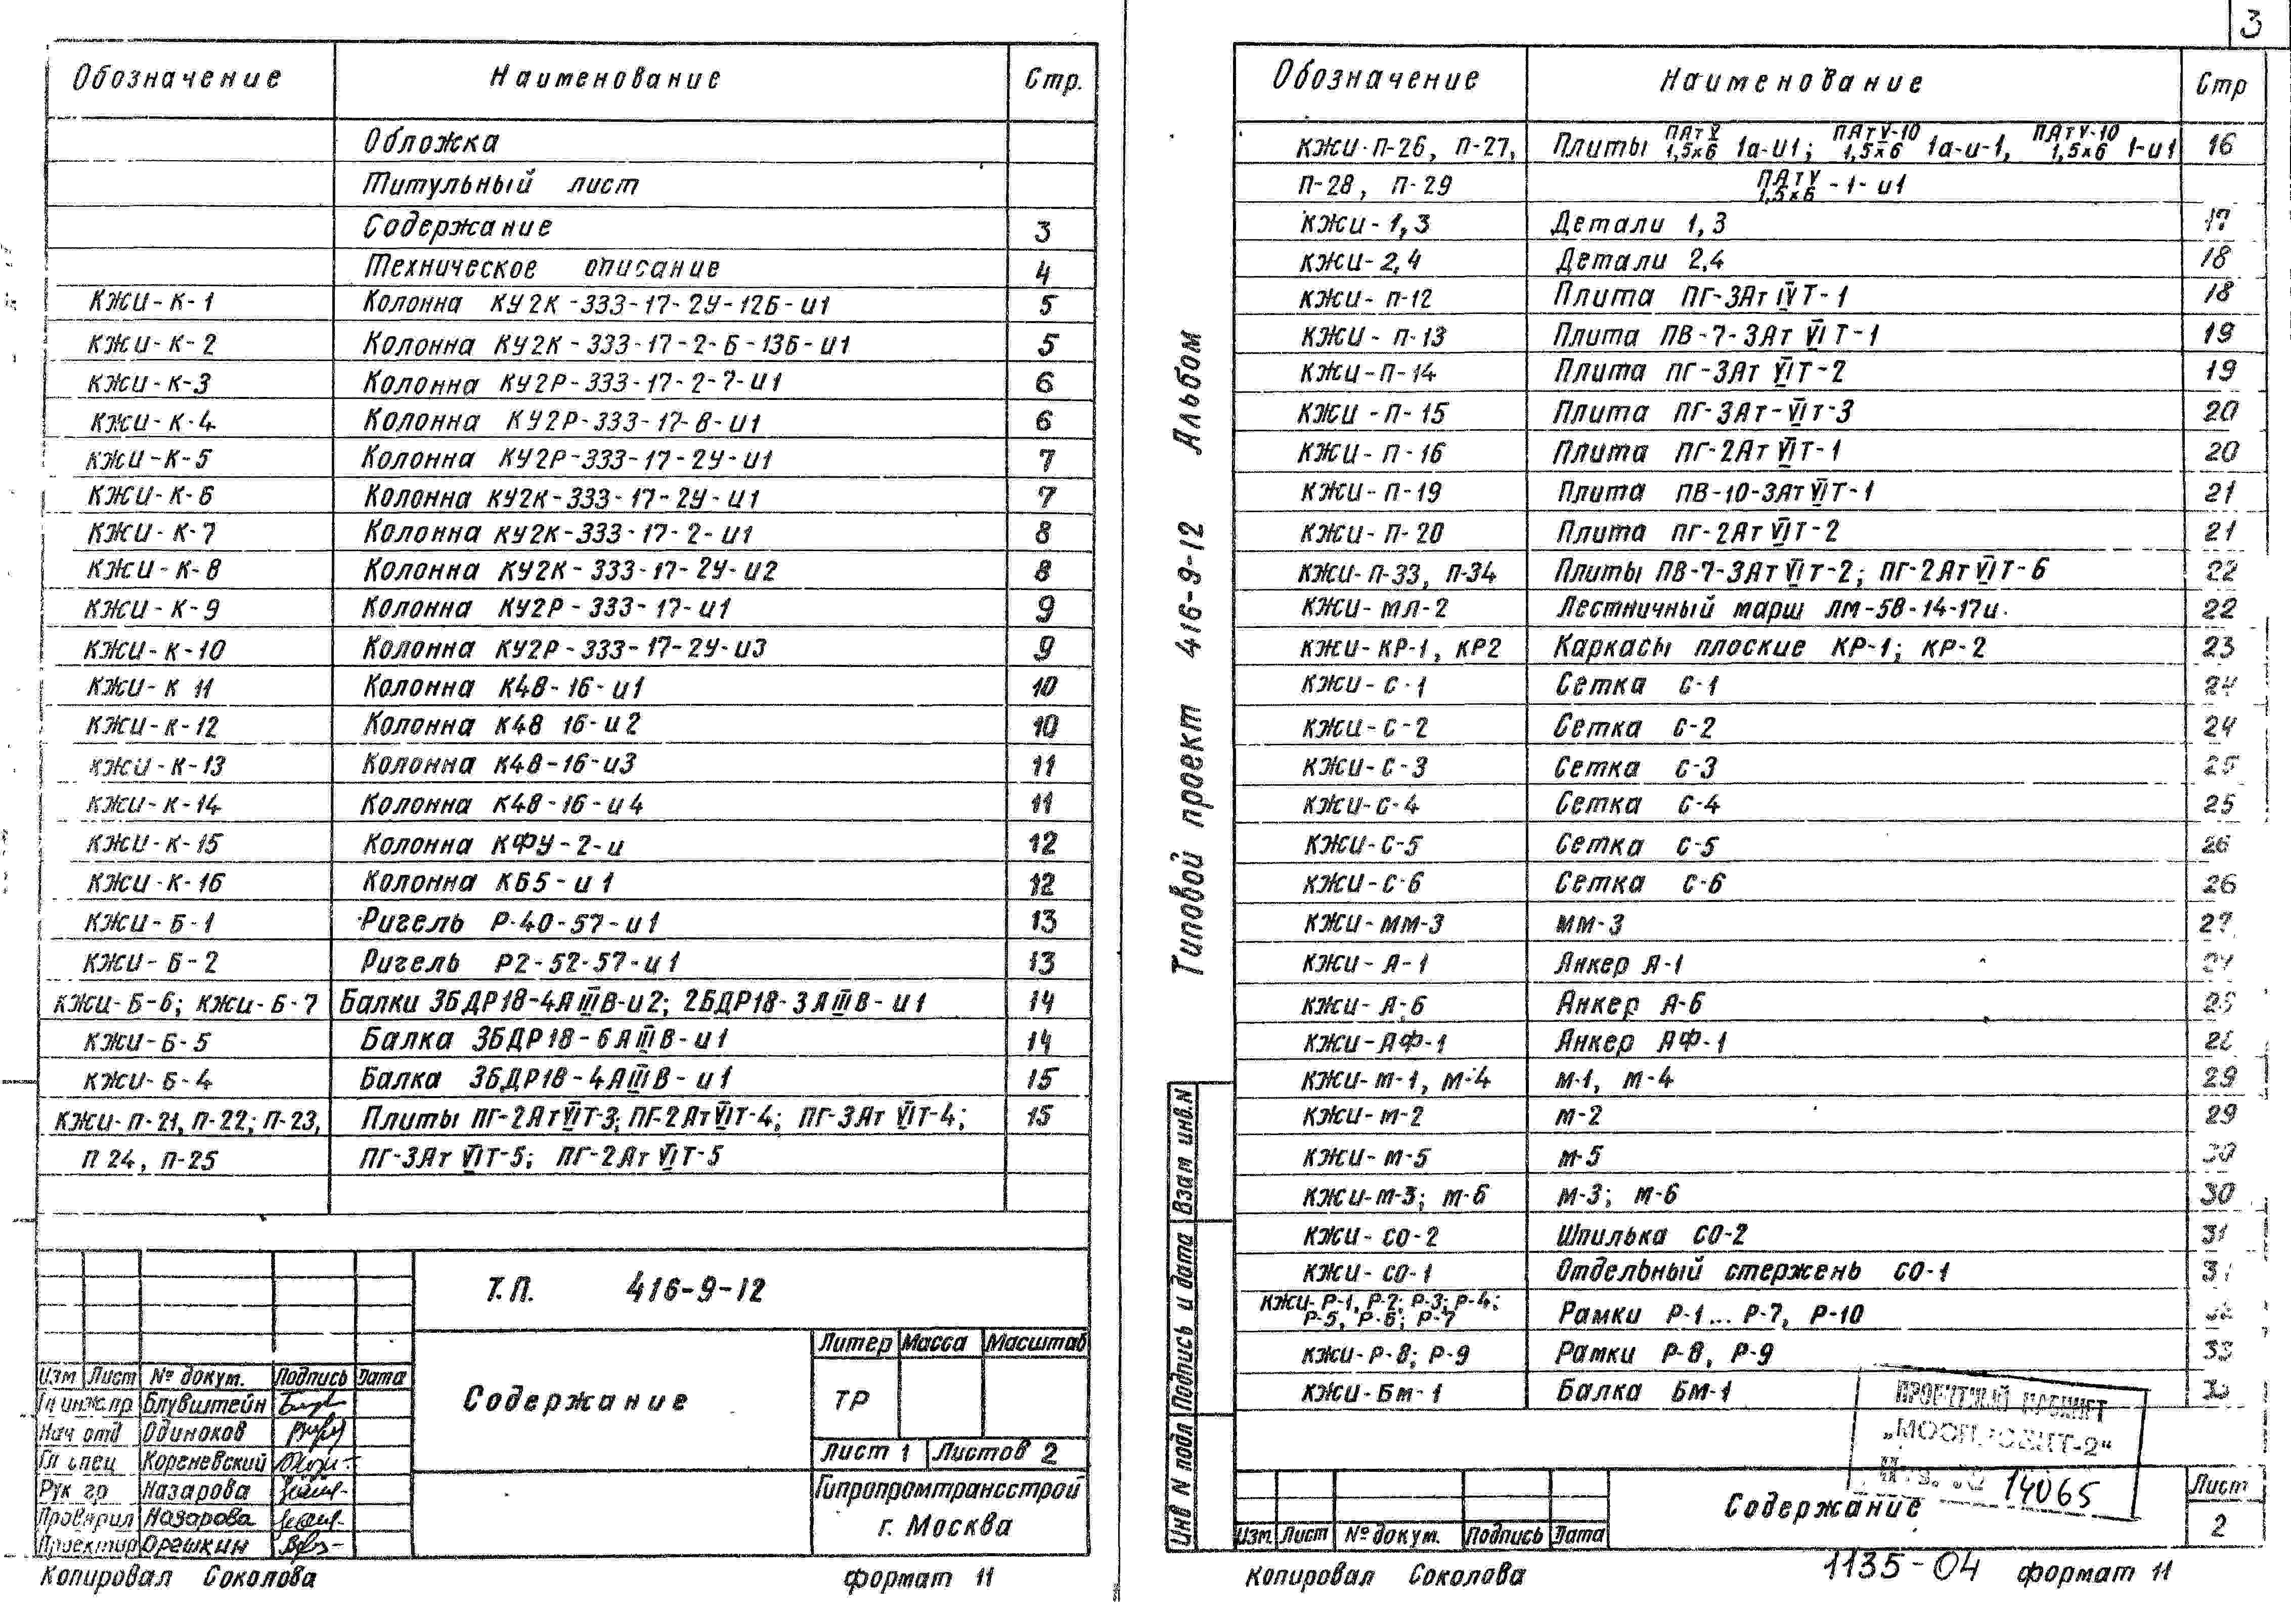 3
Обозначение Наименование Стр.
Обложка
Титульный лист
Содержание 3
Техническое описание 4
КЖИ-К-1 Колонна КУ2К-333-17-2У-12Б-и1 5
КЖИ-К-2 Колонна КУ2К-333-17-2-Б-13Б-и1 5
КЖИ-К-3 Колонна КУ2Р-333-17-2-7-и1 6
КЖИ-К-4 Колонна КУ2Р-333-17-8-и1 6
КЖИ-К-5 Колонна КУ2Р-333-17-2У-и1 7
КЖИ-К-6 Колонна КУ2К-333-17-2У-и1 7
КЖИ-К-7 Колонна КУ2К-333-17-2-и1 8
КЖИ-К-8 Колонна КУ2К-333-17-2У-и2 8
КЖИ-К-9 Колонна КУ2Р-333-17-и1 9
КЖИ-К-10 Колонна КУ2Р-333-17-2У-и3 9
КЖИ-К 11 Колонна К48-16-и1 10
КЖИ-К-12 Колонна К48 16-и2 10
КЖИ-К-13 Колонна К48-16-и3 11
КЖИ-К-14 Колонна К48-16-и4 11
КЖИ-К-15 Колонна КФУ-2-и 12
КЖИ-К-16 Колонна КБ5-и1 12
КЖИ-Б-1 Ригель Р-40-57-и1 13
КЖИ-Б-2 Ригель Р2-52-57-и1 13
КЖИ-Б-6; КЖИ-Б-7 Балки 3БДР18-4АIIIВ-и2; 2БДР18-3АIIIВ-и1 14
КЖИ-Б-5 Балка 3БДР18-6АIIIВ-и1 14
КЖИ-Б-4 Балка 3БДР18-4АIIIВ-и1 15
КЖИ-П-21, П-22; П-23, Плиты ПГ-2АтVIТ-3; ПГ-2АтVIТ-4; ПГ-3Ат VIТ-4; 15
П 24, П-25 ПГ-3Ат VIТ-5; ПГ-2Ат VIТ-5
Т.П. 416-9-12
Литер Масса Масштаб
Изм Лист № докум. Подпись Дата
Содержание ТР
Гл инж.пр Блувштейн
Нач отд Одиноков
Лист 1 Листов 2
Гл спец Кореневский
Рук гр Назарова
Гипропромтрансстрой
г. Москва
Проверил Назарова
Проектир Орешкин
Копировал Соколова формат 11
Типовой проект 416-9-12 Альбом
Обозначение Наименование Стр
КЖИ-П-26, П-27, Плиты ПАтV 1,5х6 1а-и1; ПАтV-10 1,5х6 1а-и-1, ПАтV-10 1,5х6 1-и1 16
П-28, П-29 ПАтV 1,5х6 -1-и1
КЖИ-1,3 Детали 1,3 17
КЖИ-2,4 Детали 2,4 18
КЖИ-П-12 Плита ПГ-3Ат IVТ-1 18
КЖИ-П-13 Плита ПВ-7-3Ат VIТ-1 19
КЖИ-П-14 Плита ПГ-3Ат VIТ-2 19
КЖИ-П-15 Плита ПГ-3Ат-VIТ-3 20
КЖИ-П-16 Плита ПГ-2Ат VIТ-1 20
КЖИ-П-19 Плита ПВ-10-3АтVIТ-1 21
КЖИ-П-20 Плита ПГ-2Ат VIТ-2 21
КЖИ-П-33, П-34 Плиты ПВ-7-3Ат VIТ-2; ПГ-2Ат VIТ-6 22
КЖИ-МЛ-2 Лестничный марш ЛМ-58-14-17и. 22
КЖИ-КР-1, КР2 Каркасы плоские КР-1; КР-2 23
КЖИ-С-1 Сетка С-1 24
КЖИ-С-2 Сетка С-2 24
КЖИ-С-3 Сетка С-3 25
КЖИ-С-4 Сетка С-4 25
КЖИ-С-5 Сетка С-5 26
КЖИ-С-6 Сетка С-6 26
КЖИ-ММ-3 ММ-3 27
КЖИ-А-1 Анкер А-1
КЖИ-А-6 Анкер А-6
КЖИ-АФ-1 Анкер АФ-1
КЖИ-М-1, М-4 М-1, М-4 29
КЖИ-М-2 М-2 29
КЖИ-М-5 М-5 30
КЖИ-М-3; М-6 М-3; М-6 30
КЖИ-СО-2 Шпилька СО-2 31
КЖИ-СО-1 Отдельный стержень СО-1 31
КЖИ-Р-1, Р-2; Р-3; Р-4; Р-5, Р-6; Р-7 Рамки Р-1... Р-7, Р-10 32
КЖИ-Р-8; Р-9 Рамки Р-8, Р-9 33
КЖИ-БМ-1 Балка БМ-1 33
14065
Содержание Лист
2
Изм. Лист № докум. Подпись Дата
Инв N подл Подпись и дата Взам инв.N
Копировал Соколова 1135-04 формат 11